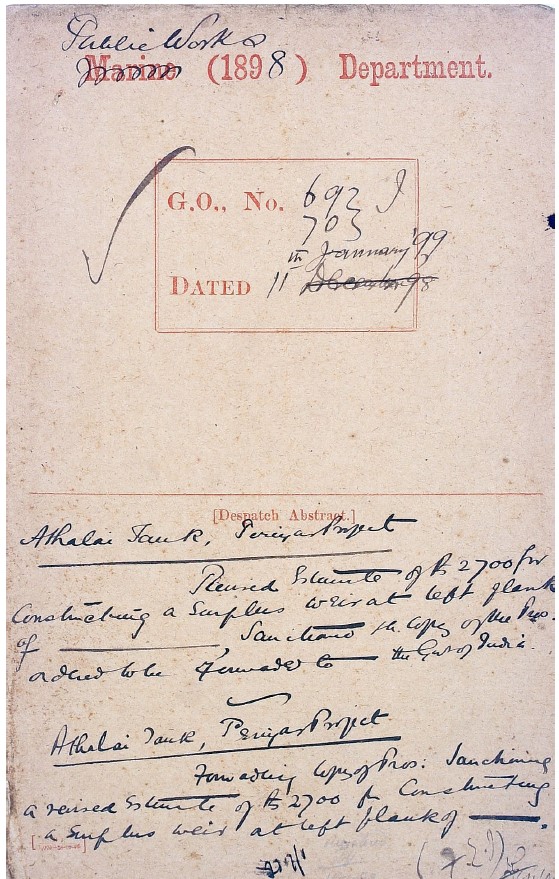 Public Works
Marine (1898) Department.
G.O., No. 692 I
703
th January '99
DATED 11 December 98
[Despatch Abstract.]
Athalai Tank, Periyar Project
Revised Estimate of Rs 2700 for
Constructing a Surplus weir at left flank
of ———, Sanctioned &c. Copy of the Pros.
ordered to be forwarded to — the Govt of India.
Athalai Tank, Periyar Project
Forwarding Copy of Pros: Sanctioning
a revised Estimate of Rs 2700 for Constructing
a Surplus weir at left flank of ———.